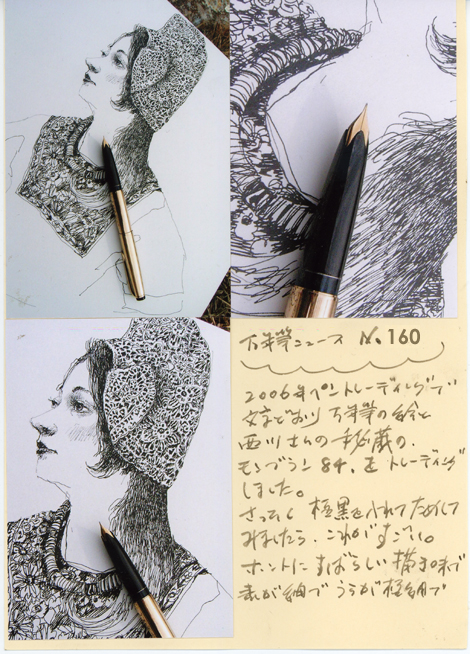 万年筆ニュース No.160
2006年ペントレーディングで
文字どおり万年筆の絵と
西川さんの秘蔵の
モンブラン 84. をトレーディング
しました。
さっそく 極黒を入れてためして
みましたら、これがすごい。
ホントにすばらしい 書き味で
表が細で うらが極細で